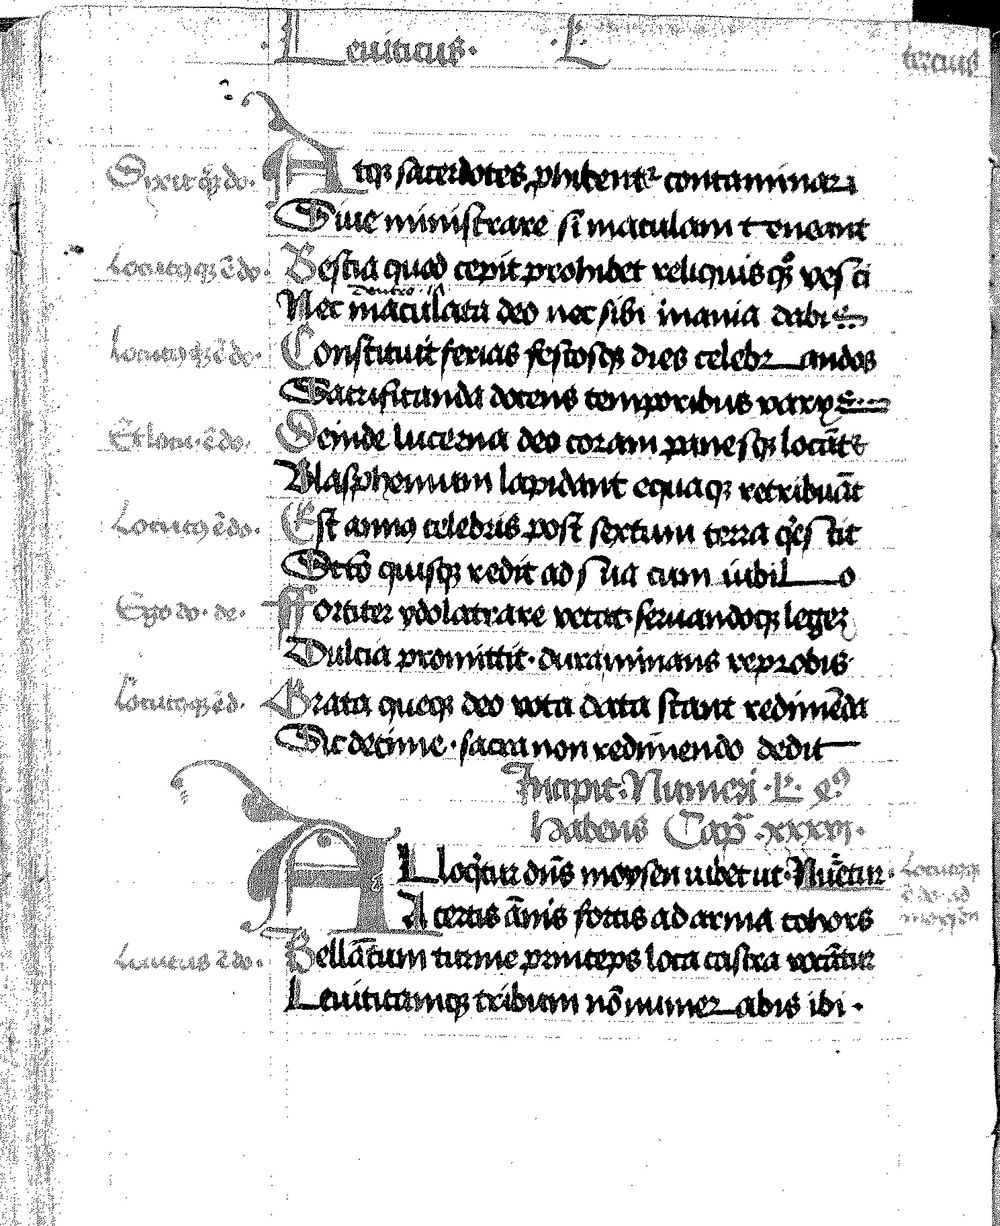 Leuiticus· ·L· tercius
Dixit q̈ȝ do·
Atqȝ sacerdotes ꝓhibentᵉ contaminari
Siue ministrare si maculam teneant
Locutꝰqȝ ē do·
Bestia quod cepit prohibet reliquis qȝ vesci
dentro
Nec maculata deo nec sibi inania dabis
locutꝰ qȝ ē do·
Constituit ferias festosqȝ dies celebrandos
Sacrificanda docens temporibus varys
Et locu· ē do·
Deinde lucerna deo coram panesqȝ locātᵉ
Blasphemum lapidant equaqȝ retribuāt
Locutꝰ ē do·
Est annꝰ celebris post sextum terra q̄escit
Octō quisqȝ redit ad sua cum iubilo
Ego do· de·
Fortiter ydolatrare vetat· seruandoqȝ legeʒ
Dulcia promittit· dura minans reprobis·
Locutꝰqȝ ē d·
Grata queqȝ deo vota data stant redimēda
Sic decime· sacra non redimendo dedit
Incipit· Numeri ·L· qꝰ
Habens Cap̄ ·xxxvi·
ALloq̄tur dn̄s moysen iubet ut· Nūetur·
Locutꝰqȝ
ē do· ad
moysen
A certis ānis fortis ad arma cohors
Leuiticus ē do·
Bellātum turme princeps loca castra vocātur
Leuiticamqȝ tribum nō numerabis ibi·